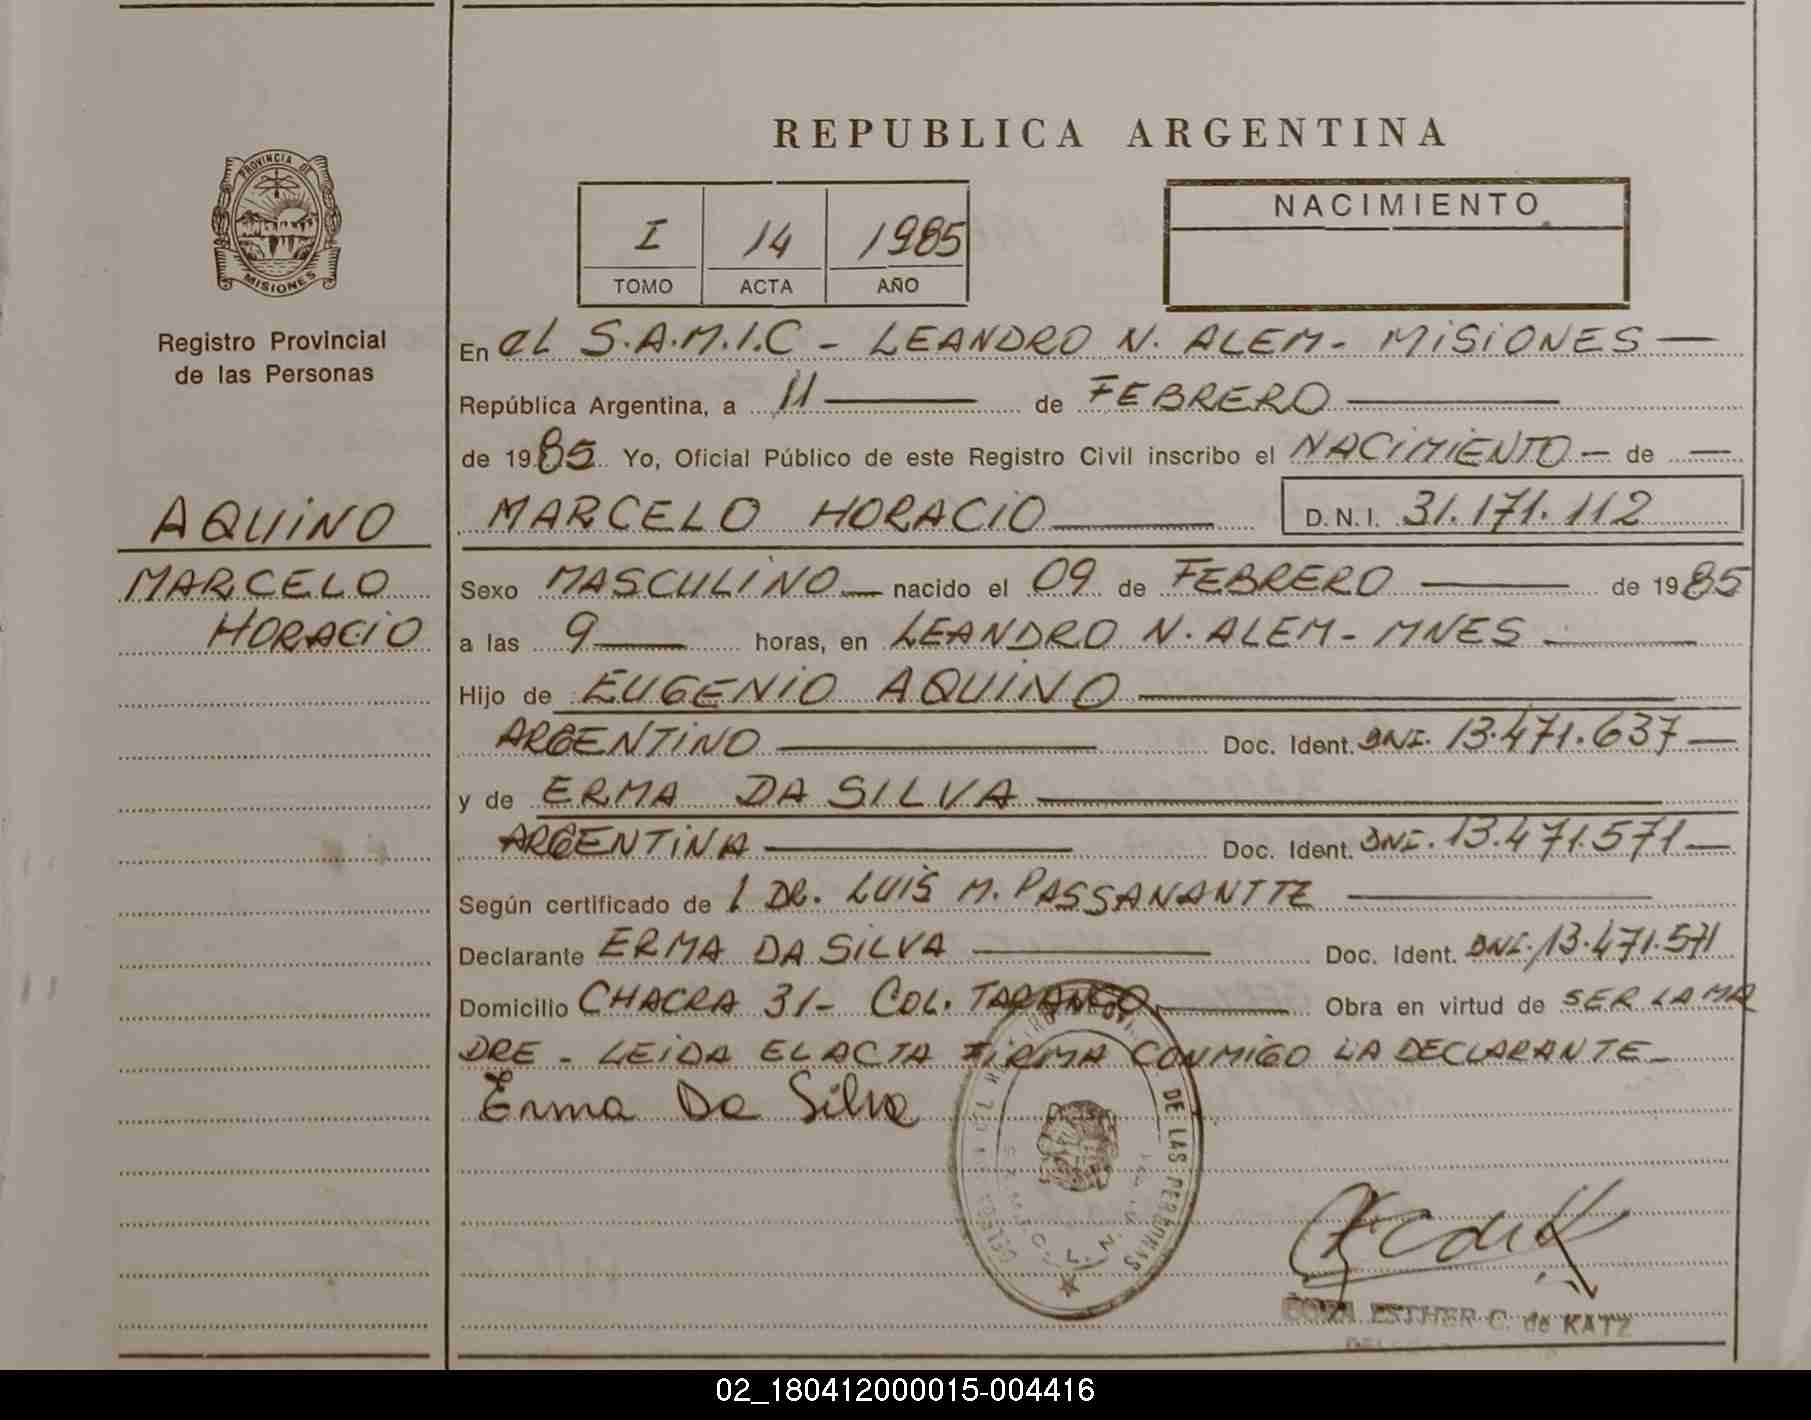 REPUBLICA ARGENTINA
PROVINCIA DE
MISIONES
Registro Provincial
de las Personas
I 14 1985
TOMO ACTA AÑO
NACIMIENTO
En el S.A.M.I.C - LEANDRO N. ALEM - MISIONES —
República Argentina, a 11 — de FEBRERO —
de 1985 Yo, Oficial Público de este Registro Civil inscribo el NACIMIENTO — de —
AQUINO
MARCELO HORACIO — D.N.I. 31.171.112
MARCELO
HORACIO
Sexo MASCULINO — nacido el 09 de FEBRERO — de 1985
a las 9 — horas, en LEANDRO N. ALEM - MNES —
Hijo de EUGENIO AQUINO —
ARGENTINO — Doc. Ident. DNI. 13.471.637 —
y de ERMA DA SILVA —
ARGENTINA — Doc. Ident. DNI. 13.471.571 —
Según certificado de 1 DR. LUIS M. —
Declarante ERMA DA SILVA — Doc. Ident. DNI. 13.471.571
Domicilio CHACRA 31 - COL. TARANCO — Obra en virtud de SER LA MA
DRE - LEIDA EL ACTA FIRMA CONMIGO LA DECLARANTE —
Erma Da Silva
DE LAS PERSONAS
S.A.M.I.C. L.N.
ESTHER C. de KATZ
02_180412000015-004416